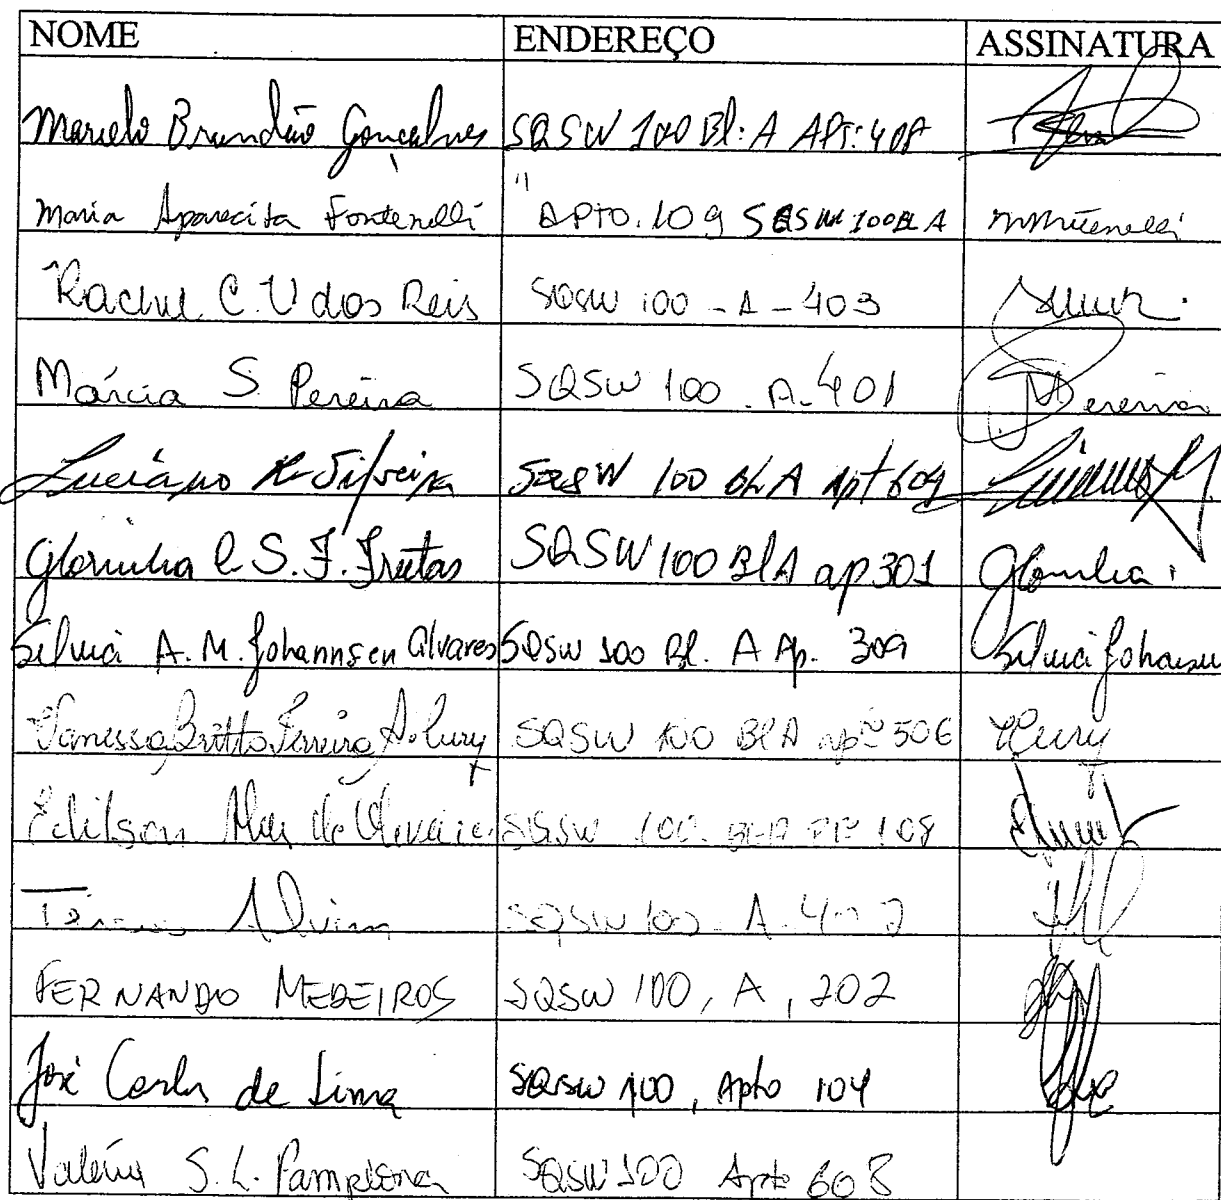 NOME ENDEREÇO ASSINATURA
Marcelo Brandão Gonçalves SQSW 100 Bl: A APT: 408
Maria Aparecita Fontenelli " APTO. 109 SQSW 100 BL A
Rachel C. V dos Reis SQSW 100 - A - 403
Márcia S. Pereira SQSW 100 - A - 401 Pereira
Luciano R. Silveira SQSW 100 BL A apt 604
Glorinha C. S. F. Freitas SQSW 100 Bl A ap 301 Glorinha
Silvia A. M. Johannsen Alvares SQSW 100 Bl. A Ap. 309 Silvia Johansen
Vanessa Britto Ferreira A. Cury SQSW 100 Bl A apº 506 Cury
Edilson Alves de Oliveira SQSW 100 - BL-A 108
Alvim SQSW 100 - A - 402
FERNANDO MEDEIROS SQSW 100, A, 202
José Carlos de Lima SQSW 100, Apto 104
Valéria S. L. Pamplona SQSW 100 Apto 608